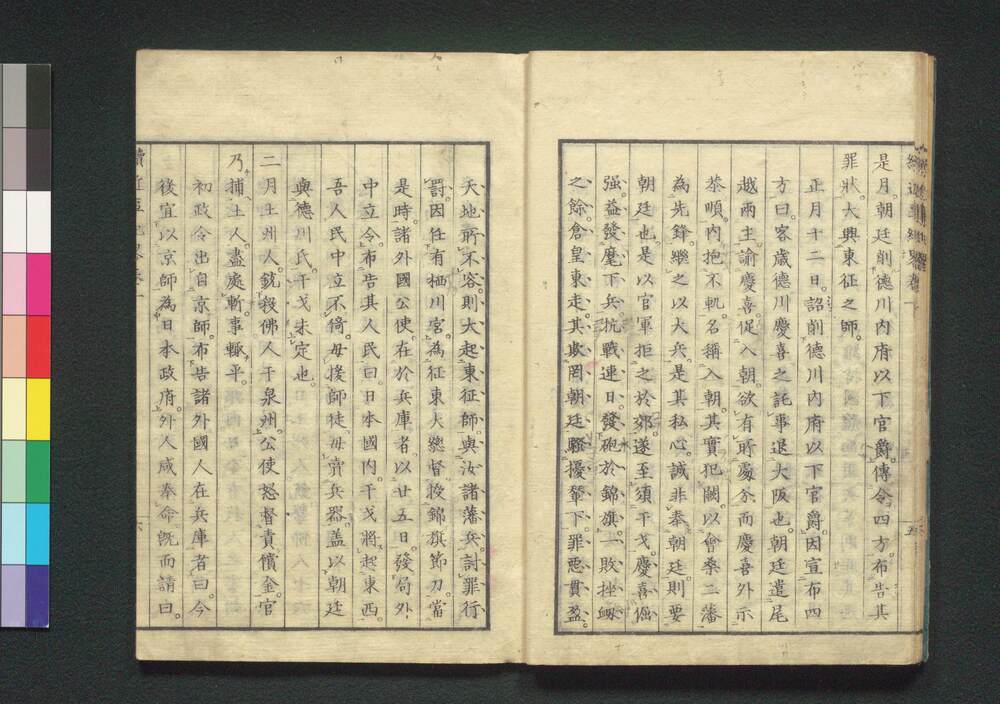 是月朝廷削德川内府以下官爵。傳令四方。布告其
罪狀。大興東征之師。
正月十二日。詔削德川内府以下官爵。因宣布四
方曰。客歳德川慶喜之託事退大阪也。朝廷遣尾
越兩主。諭慶喜。促入朝。欲有所處分。而慶喜外示
恭順。内抱不軌。名稱入朝。其實犯闕。以會桑二藩
為先鋒。繼之以大兵。是其私心。誠非奉朝廷。則要
朝廷也。是以官軍拒之於郊。遂至須干戈。慶喜倔
强。益發麾下兵。抗戰連日。發砲於錦旗。一敗挫衂
之餘。倉皇東走。其欺罔朝廷。騷擾輦下。罪惡貫盈。
五
天地所不容。則大起東征師。與汝諸藩兵。討罪行
罰。因任有栖川宮。為征東大總督。授錦旗節刀。當
是時。諸外國公使。在於兵庫者。以廿五日。發局外
中立令。布告其人民曰。日本國内。干戈將起東西。
吾人民中立不倚。毋援師徒。毋賣兵器。盖以朝廷
與德川氏。干戈未定也。
二月。土州人。銃殺佛人于泉州。公使怒督責償金。官
乃捕土人。盡處斬。事輙平。
初政令出自京師。布告諸外國人在兵庫者曰。今
後宜以京師為日本政府。外人咸奉命。既而請曰。
六